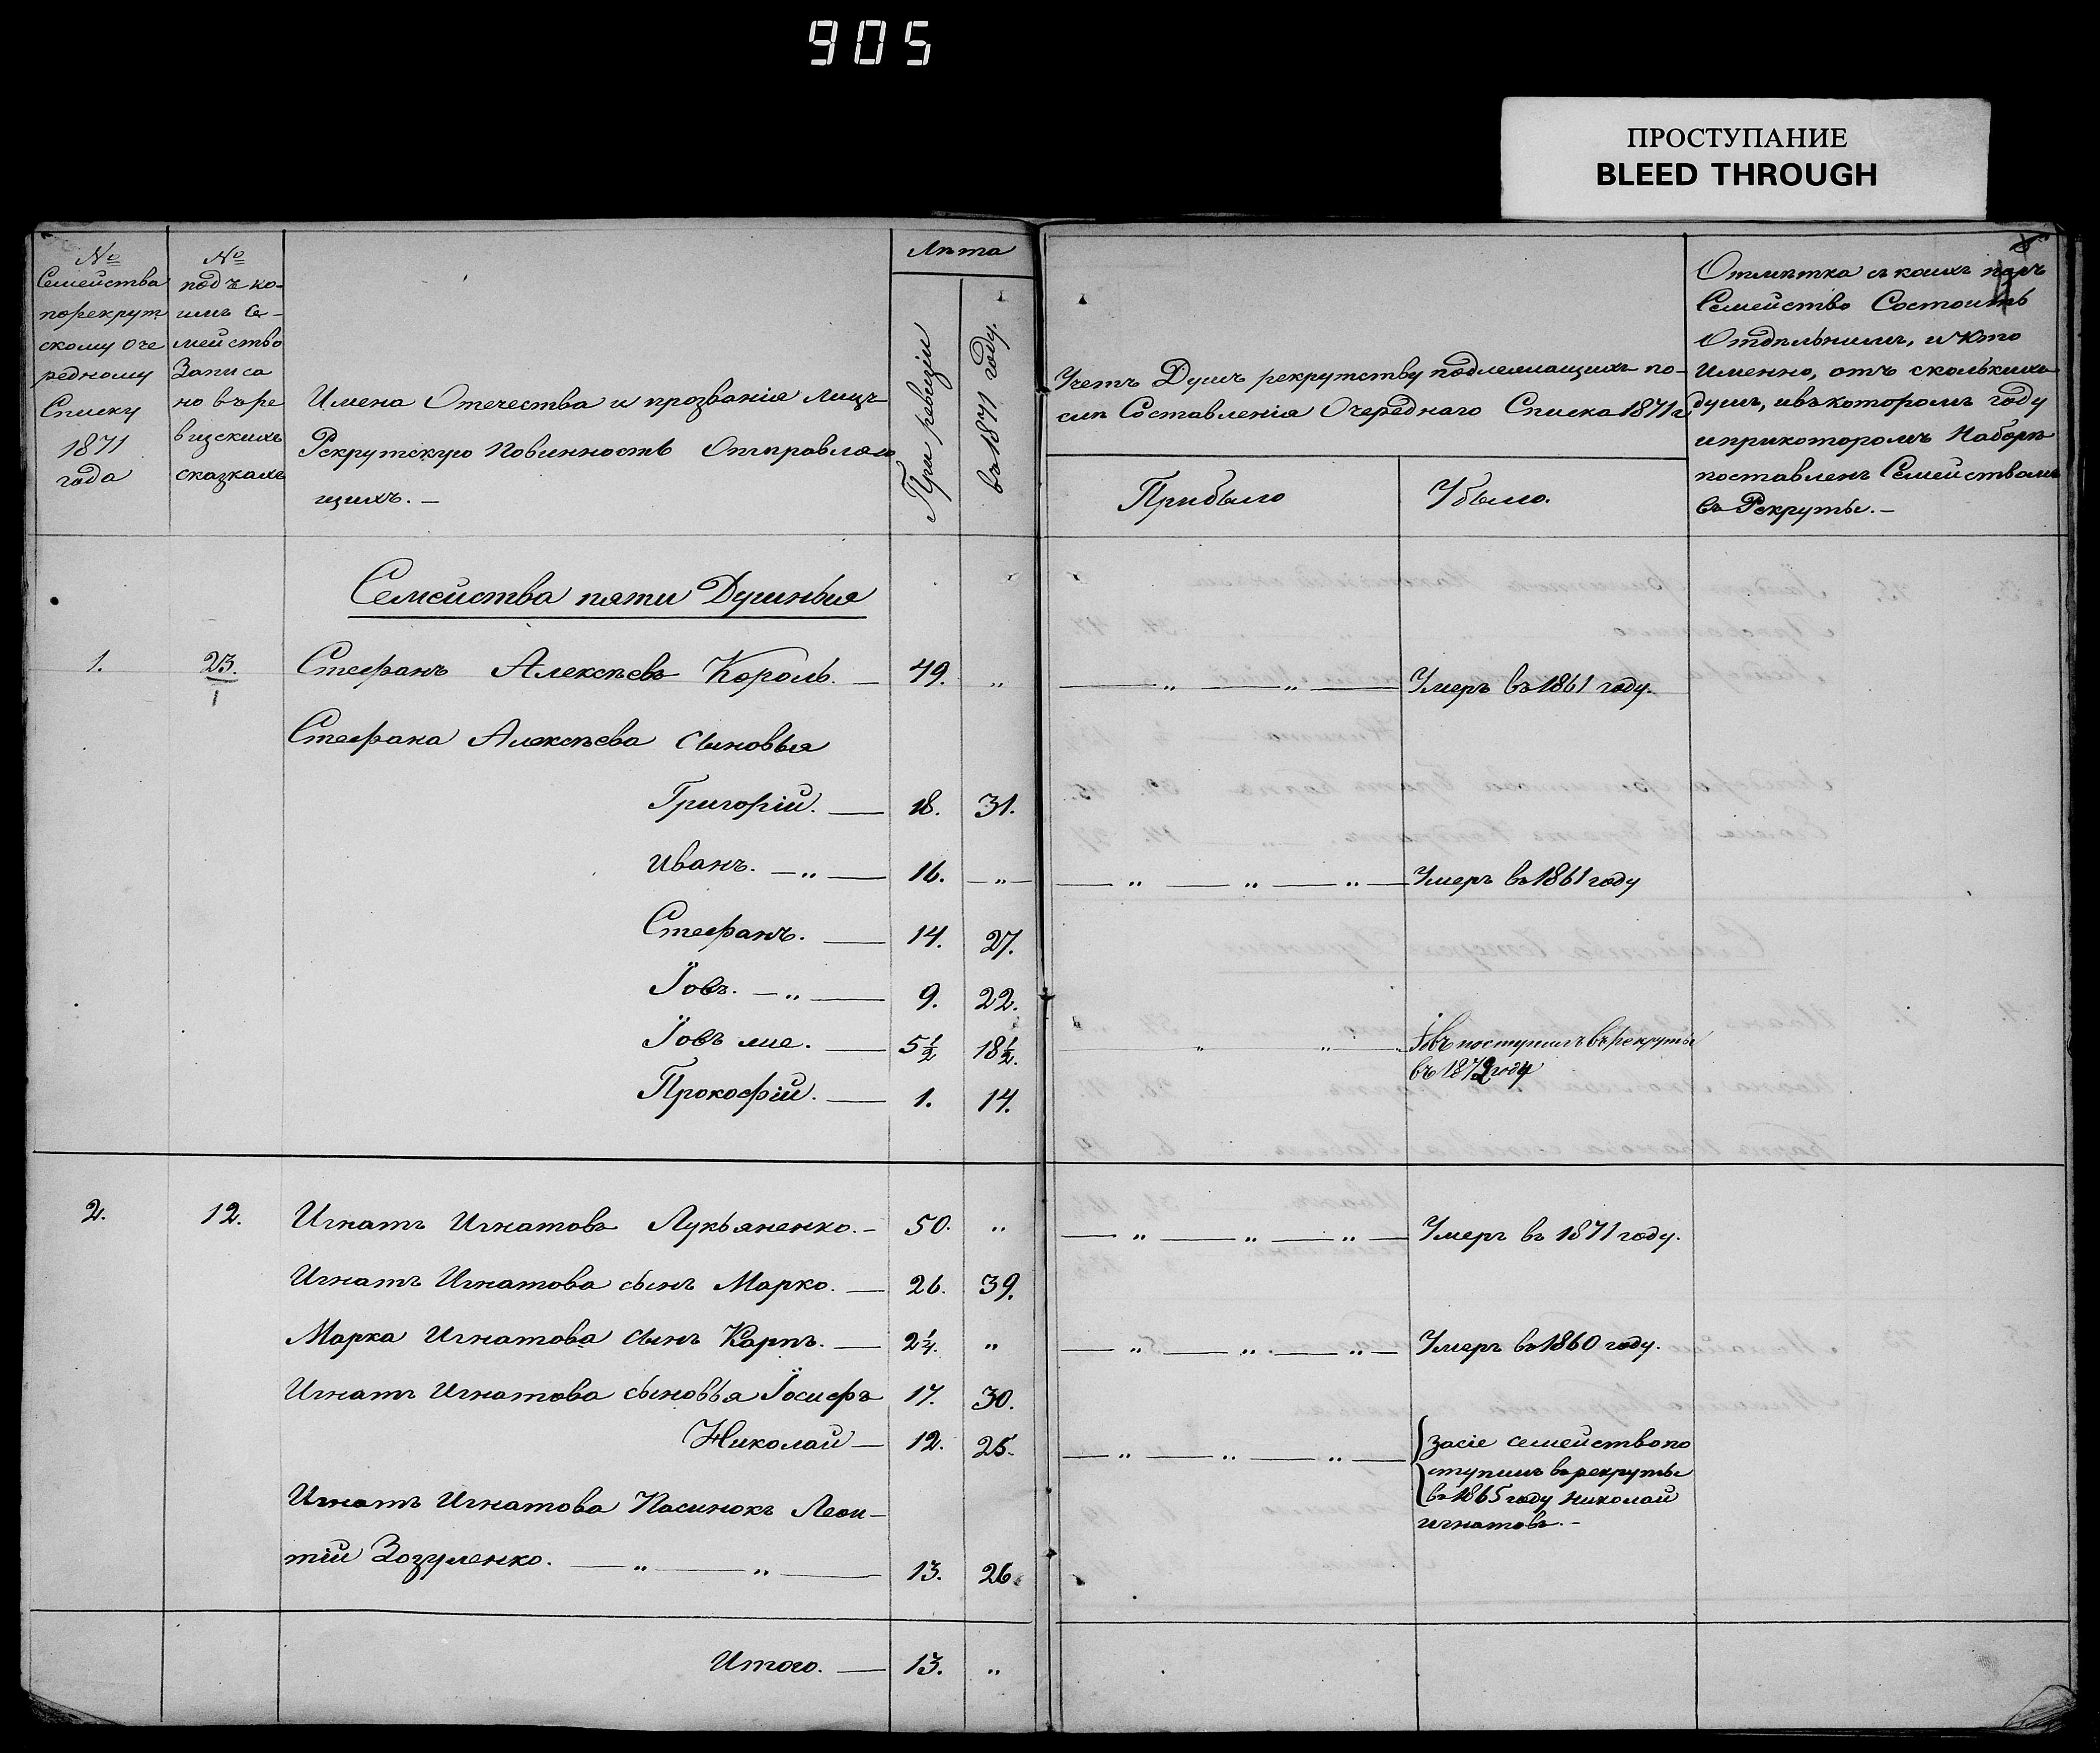 905
ПРОСТУПАНИЕ
BLEED THROUGH
№
Семейства
порекрут
скому оче
редному
Списку
1871
года
№
подъ ко-
имъ Се-
мейство
Записа
но въ ре
визскихъ
сказкахъ
Имена Отечества и прозванія лицъ
Рекрутскую Повинность Отправляю
щихъ. —
Лѣта
При ревизіи
въ 1871 году.
Учетъ Душъ рекрутству подлежащихъ по-
слѣ Составленія Очереднаго Списка 1871 г.
Прибыло
Убыло.
Отмѣтка съ коихъ поръ
Семейство Состоитъ
Отдѣльнымъ, и кто
именно, отъ сколькихъ
душъ, и въ которомъ году
и при которомъ Наборѣ
поставленъ Семействомъ
въ Рекруты. —
Семейства пяти Душныя
1. 23. Стефанъ Алексѣевъ Король. — 49. „ — „ — „ — Умеръ въ 1861 году.
1
Стефана Алексѣева сыновья
Григорій. — 18. 31.
Иванъ. — „ — 16. — „ — — „ — „ — „ — Умеръ въ 1861 году
Стефанъ. — 14. 27.
Іовъ. — „ — 9. 22.
Іовъ же. — 5½ 18½. — „ — „ — Іовъ поступилъ въ рекруты
въ 1872 году
Прокофій. — 1. 14.
2. 12. Игнатъ Игнатовъ Лукьяненко. — 50. „ — „ — „ — „ — Умеръ въ 1871 году.
Игнатъ Игнатова сынъ Марко. — 26. 39.
Марка Игнатова сынъ Карпъ. — 2¼. „ — „ — „ — „ — Умеръ въ 1860 году.
Игнатъ Игнатова сыновья Іосифъ 17. 30.
Николай — 12. 25. — „ — „ — „ — засіе семейство по
ступилъ въ рекруты
въ 1865 году Николай
Игнатовъ. —
Игнатъ Игнатова Пасинокъ Леон-
тій Зозуленко. — „ — „ — 13. 26.
Итого. — 13. „